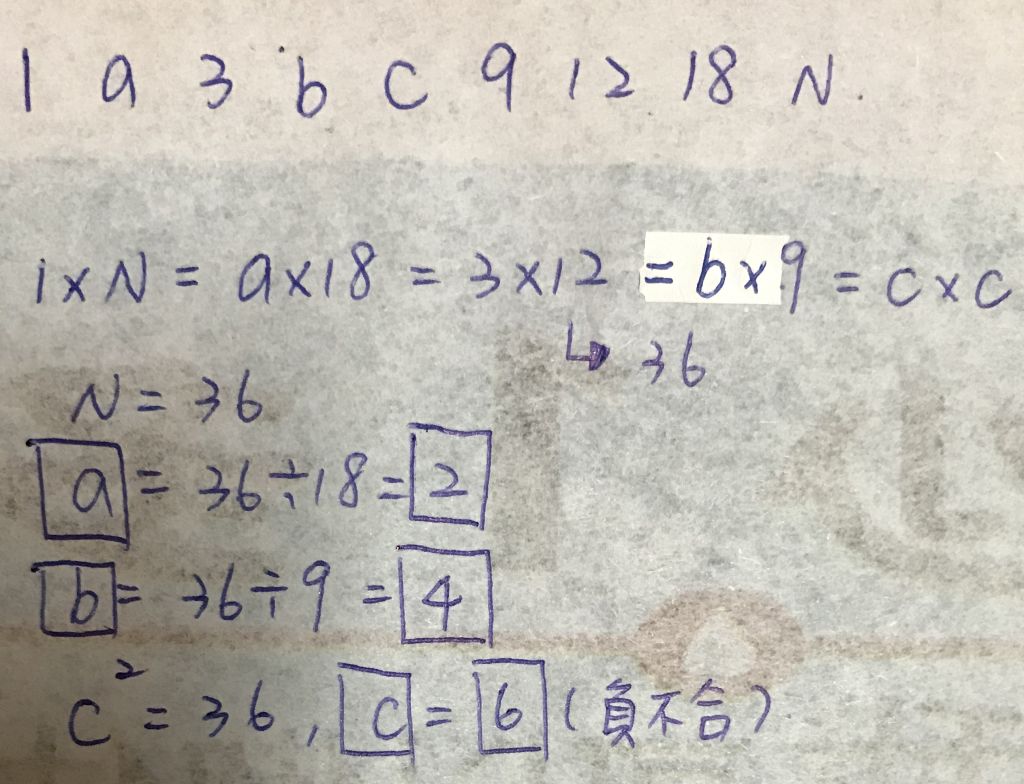 1 a 3 b c 9 12 18 N.
1×N = a×18 = 3×12 = b×9 = c×c
↳ 36
N = 36
a = 36÷18 = 2
b = 36÷9 = 4
c² = 36, c = 6 (負不合)